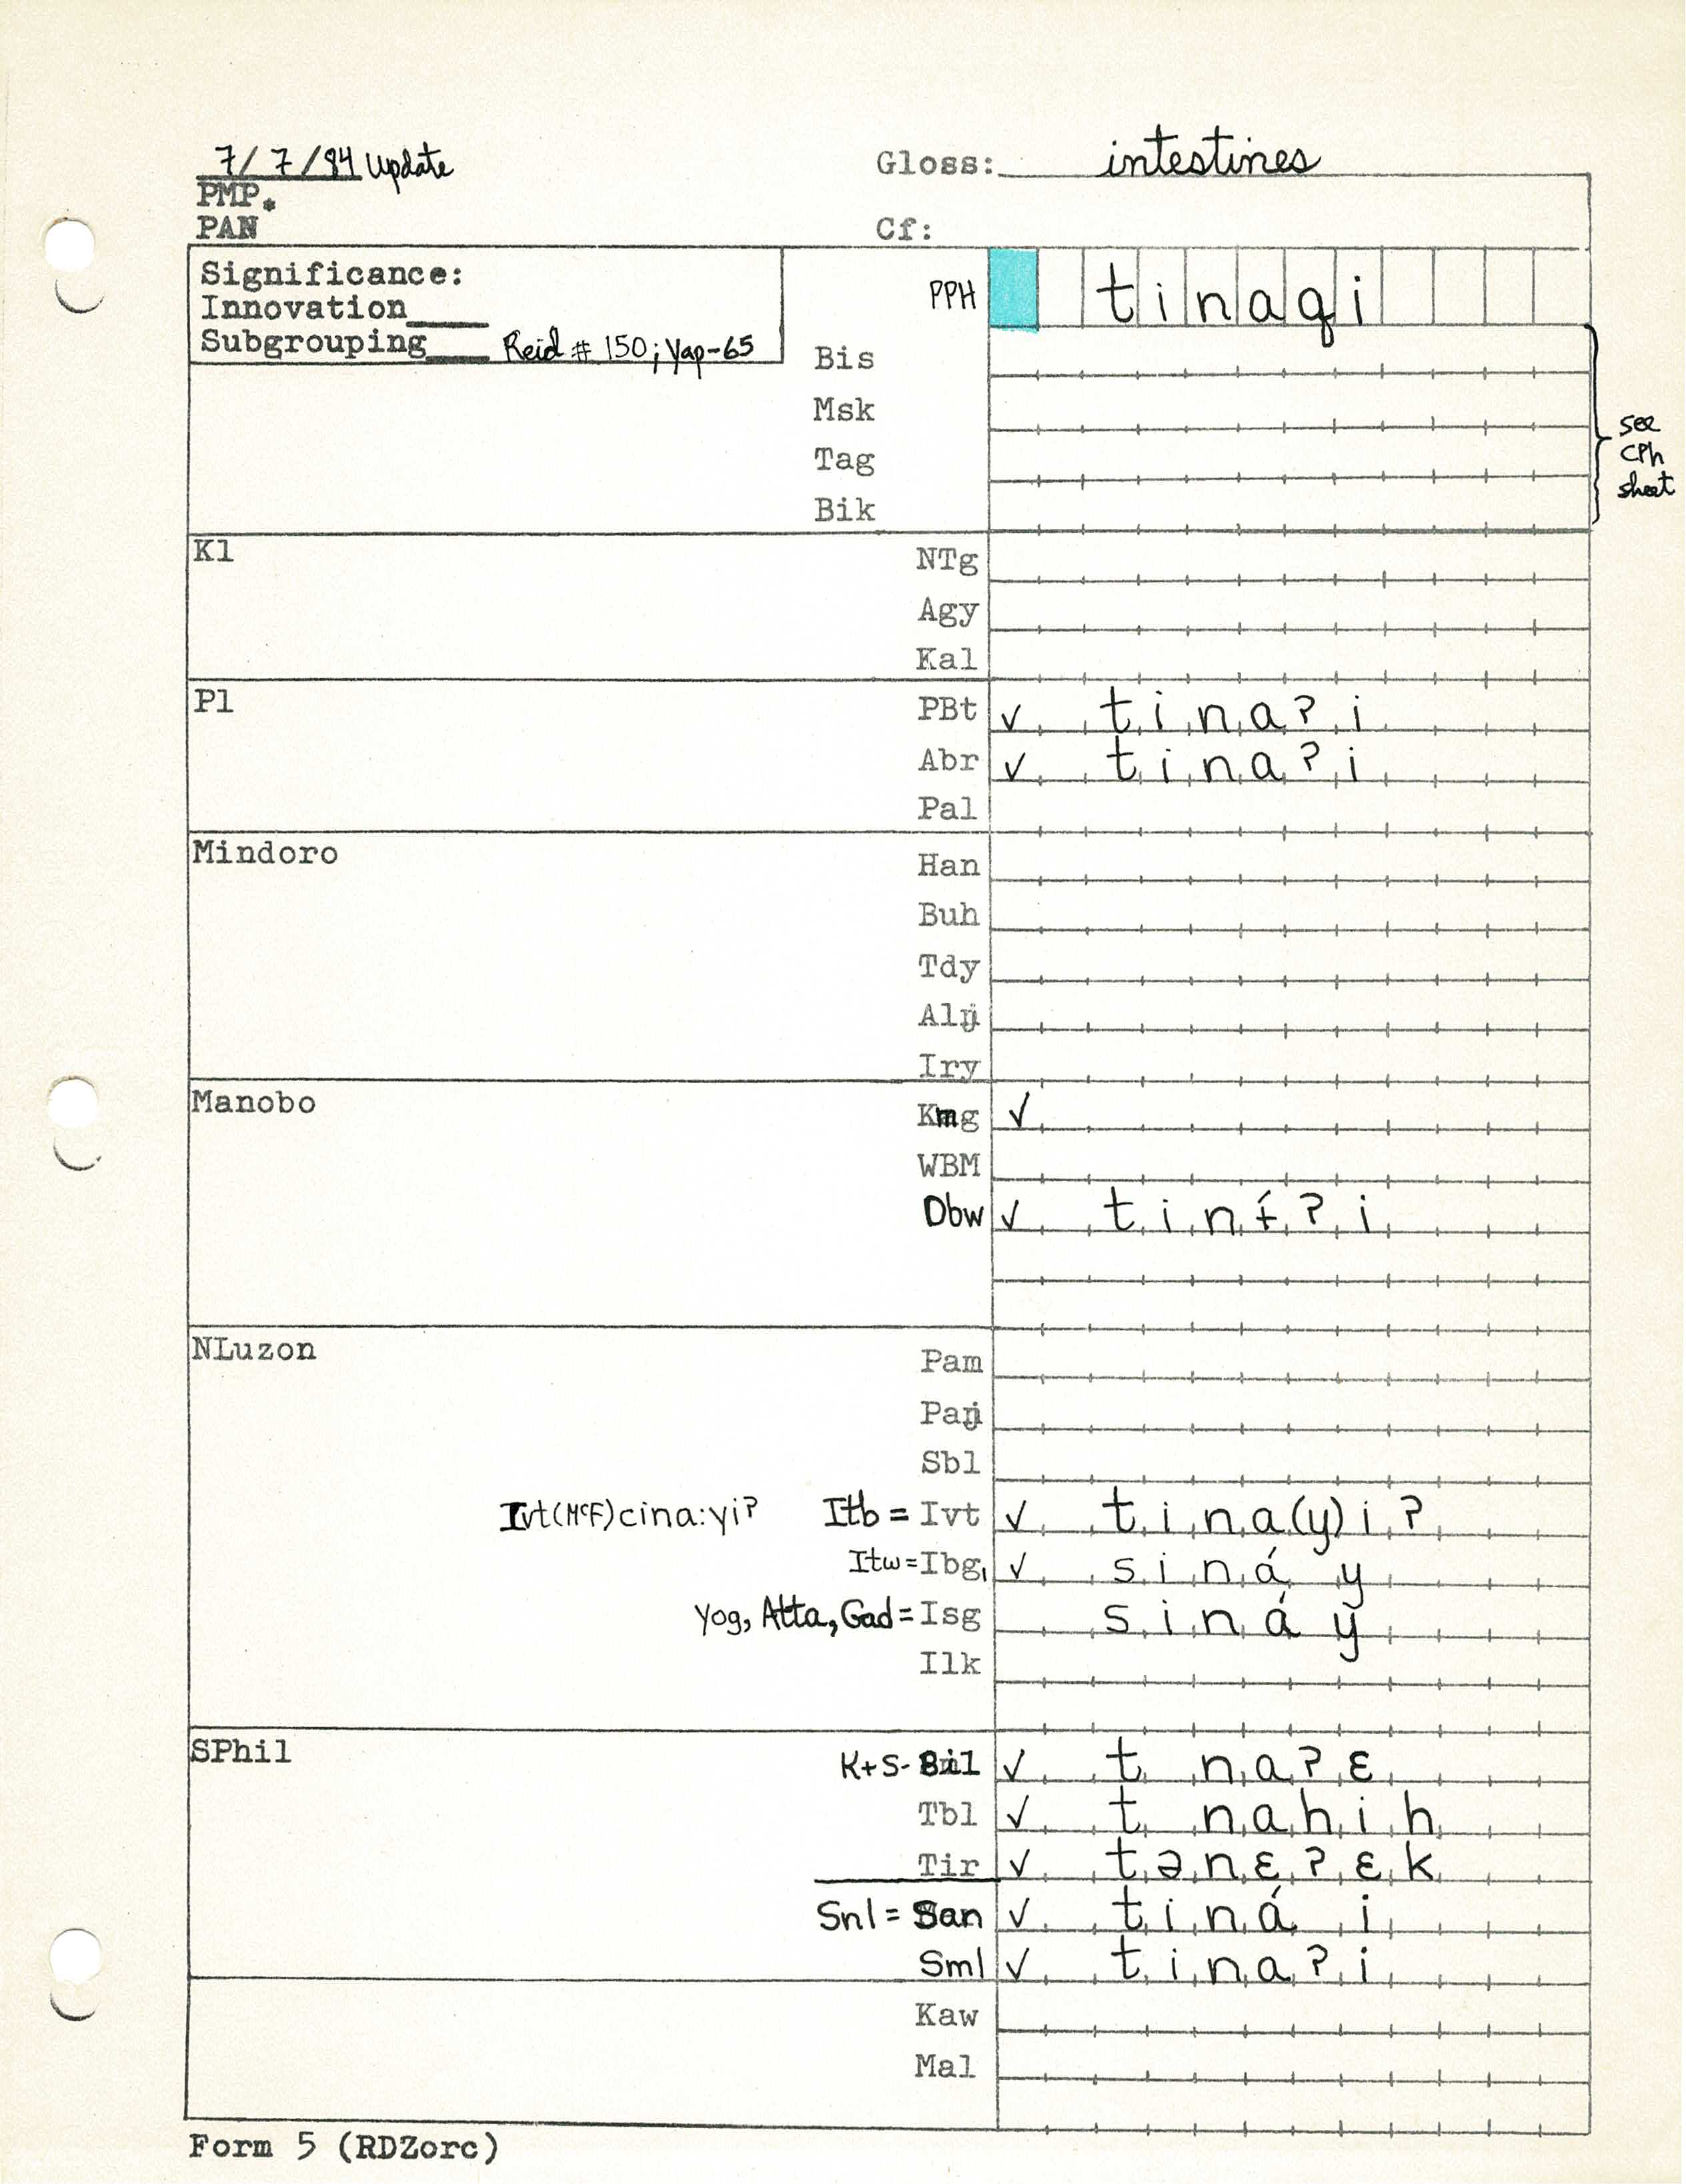 7/7/84 update Gloss: intestines
PMP *
PAN Cf:
Significance: PPH tinaqi
Innovation____
Subgrouping____ Reid # 150; Yap-65
Bis
Msk
Tag
Bik
see
CPh
sheet
Kl NTg
Agy
Kal
Pl PBt ✓ tinaʔi
Abr ✓ tinaʔi
Pal
Mindoro Han
Buh
Tdy
Alŋ
Iry
Manobo Kmg ✓
WBM
Dbw ✓ tinɨ́ʔi
NLuzon Pam
Paŋ
Sbl
Ivt(McF)cina:yiʔ Itb = Ivt ✓ tina(y)iʔ
Itw = Ibg ✓ sináy
Yog, Atta, Gad = Isg sináy
Ilk
SPhil K+S-Bil ✓ t naʔɛ
Tbl ✓ t nahih
Tir ✓ tənɛʔɛk
Snl = San ✓ tiná i
Sml ✓ tinaʔi
Kaw
Mal
Form 5 (RDZorc)